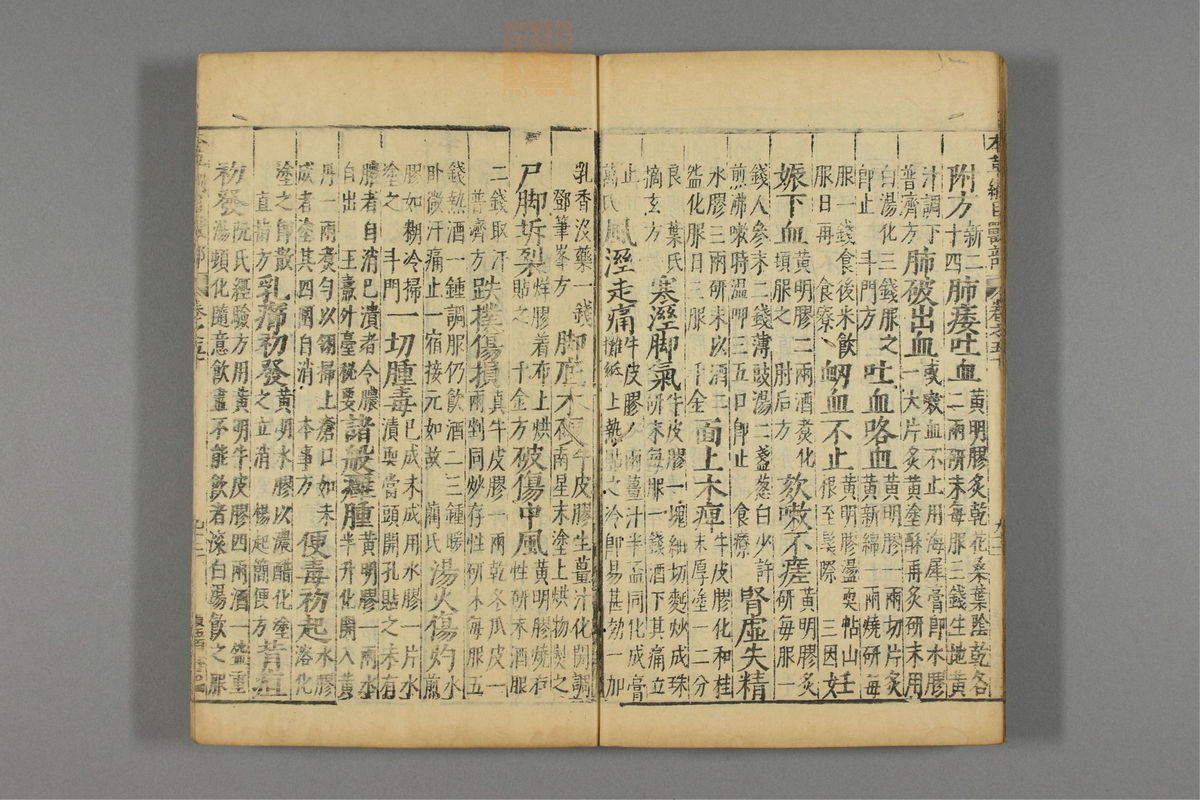 本草綱目獸部 卷之五十
附方新二十四 肺痿吐血黃明膠炙乾花桑葉陰乾各二兩研末每服三錢生地黃
汁調下普濟方 肺破出血或嗽血不止用海犀膏即水膠一大片炙黃塗酥再炙研末用
白湯化三錢服之即止斗門方 吐血咯血黃明膠一兩切片炙黃新綿一兩燒研每
服一錢食後米飲服日再食療 衄血不止黃明膠盪耎帖山根至髮際三因 妊
娠下血黃明膠二兩酒煮化頓服之肘后方 欬嗽不瘥黃明膠炙研每服一
錢人參末二錢薄豉湯二盞葱白少許煎沸嗽時溫呷三五口即止食療 腎虛失精
水膠三兩研末以酒二盌化服日三服千金 面上木痺牛皮膠化和桂末厚塗一二分
良葉氏摘玄方 寒溼脚氣牛皮膠一塊細切麫炒成珠研末每服一錢酒下其痛立
止萬氏 風溼走痛牛皮膠一兩薑汁半盃同化成膏攤紙上熱貼之冷即易甚効一加
乳香沒藥一錢鄧筆峯方 脚底木風牛皮膠生薑汁化開調南星末塗上烘物熨之
尸脚坼裂烊膠着布上烘貼之千金方 破傷中風黃明膠燒存性研末酒服
二錢取汗普濟方 跌撲傷損真牛皮膠一兩乾冬瓜皮一兩剉同炒存性研末每服五
錢熱酒一鍾調服仍飲酒二三鍾暖臥微汗痛止一宿接元如故藺氏 湯火傷灼水煎
膠如糊冷掃塗之斗門 一切腫毒已成未成用水膠一片水漬耎當頭開孔貼之未有
膿者自消已潰者令膿自出王燾外臺秘要 諸般癰腫黃明膠一兩水半升化開入黃
丹一兩煮勻以翎掃上瘡口如未成者塗其四圍自消本事方 便毒初起水膠溶化
塗之即散直指方 乳癤初發黃明水膠以濃醋化塗之立消楊起簡便方 背疽
初發阮氏經驗方用黃明牛皮膠四兩酒一盌重湯頓化隨意飲盡不能飲者滾白湯飲之服